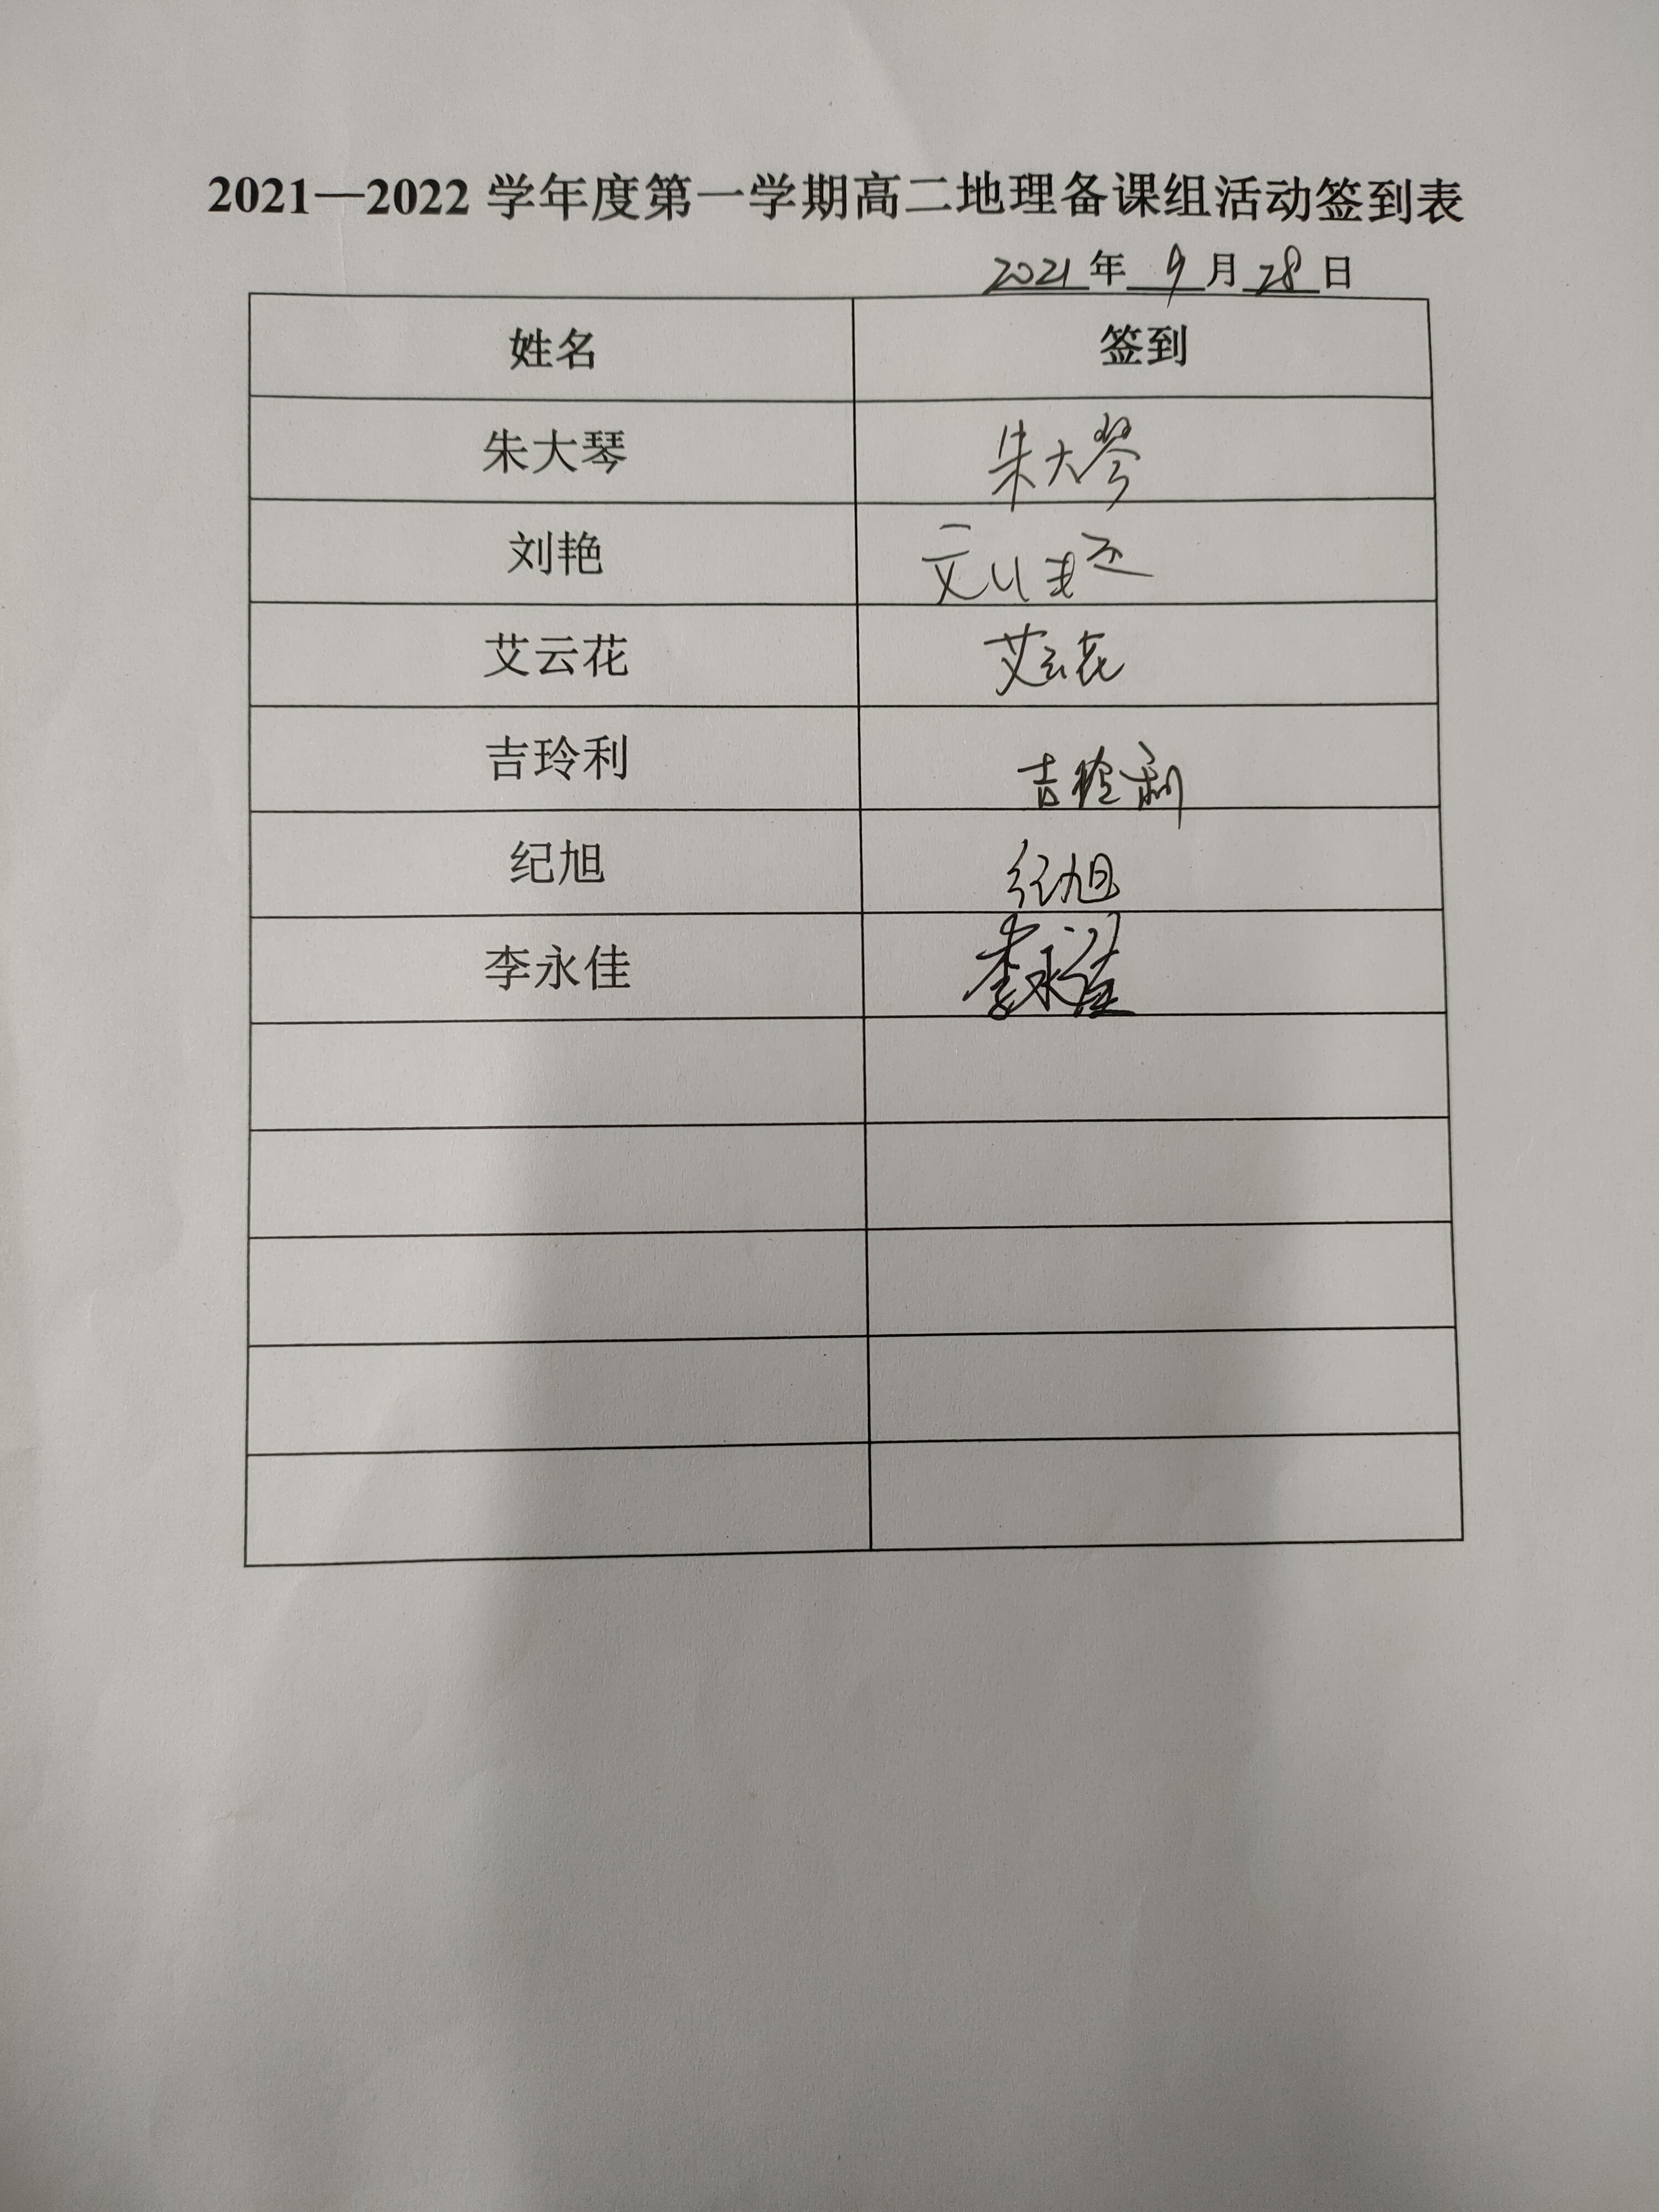 2021—2022 学年度第一学期高二地理备课组活动签到表
2021年 9月28日
姓名 签到
朱大琴 朱大琴
刘艳 刘艳
艾云花 艾云花
吉玲利 吉玲利
纪旭 纪旭
李永佳 李永佳